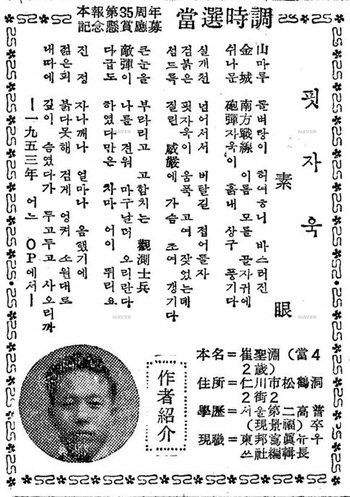 本報第35周年
記念懸賞應募
當選時調
핏자욱
素眼
山마루 돌벼랑이 허여ㅎ니 바스러진
金城 南方戰線 이름 모를 끝자귀에
쉬나문 砲彈자욱이 흙내 상구 풍기다
실개천 넘어서서 비탈길 접어들자
검붉은 핏자욱이 움푹 고여 잦었는데
섬트륵 질린 威嚴에 가슴 조여 갱기다
큰눈을 부라리고 고함치는 觀測士兵
敵彈이 나를 견워 마구날려 오리란다
다급도 하였다만은 차마 어이 뛰리요
진정 자나깨나 얼마나 기에
젊은피 붉다못해 검게 엉켜 소원대로
내따에 깊이 슴였다가 두고두고 사오리까
―一九五三年 어느 OP에서―
作者紹介
本名=崔聖淵(當4
2歲)
住所=仁川市松鶴洞
2街2
學歷=서울第二高普
(現景福)卒
現職=東邦寫眞뉴
쓰社編輯長